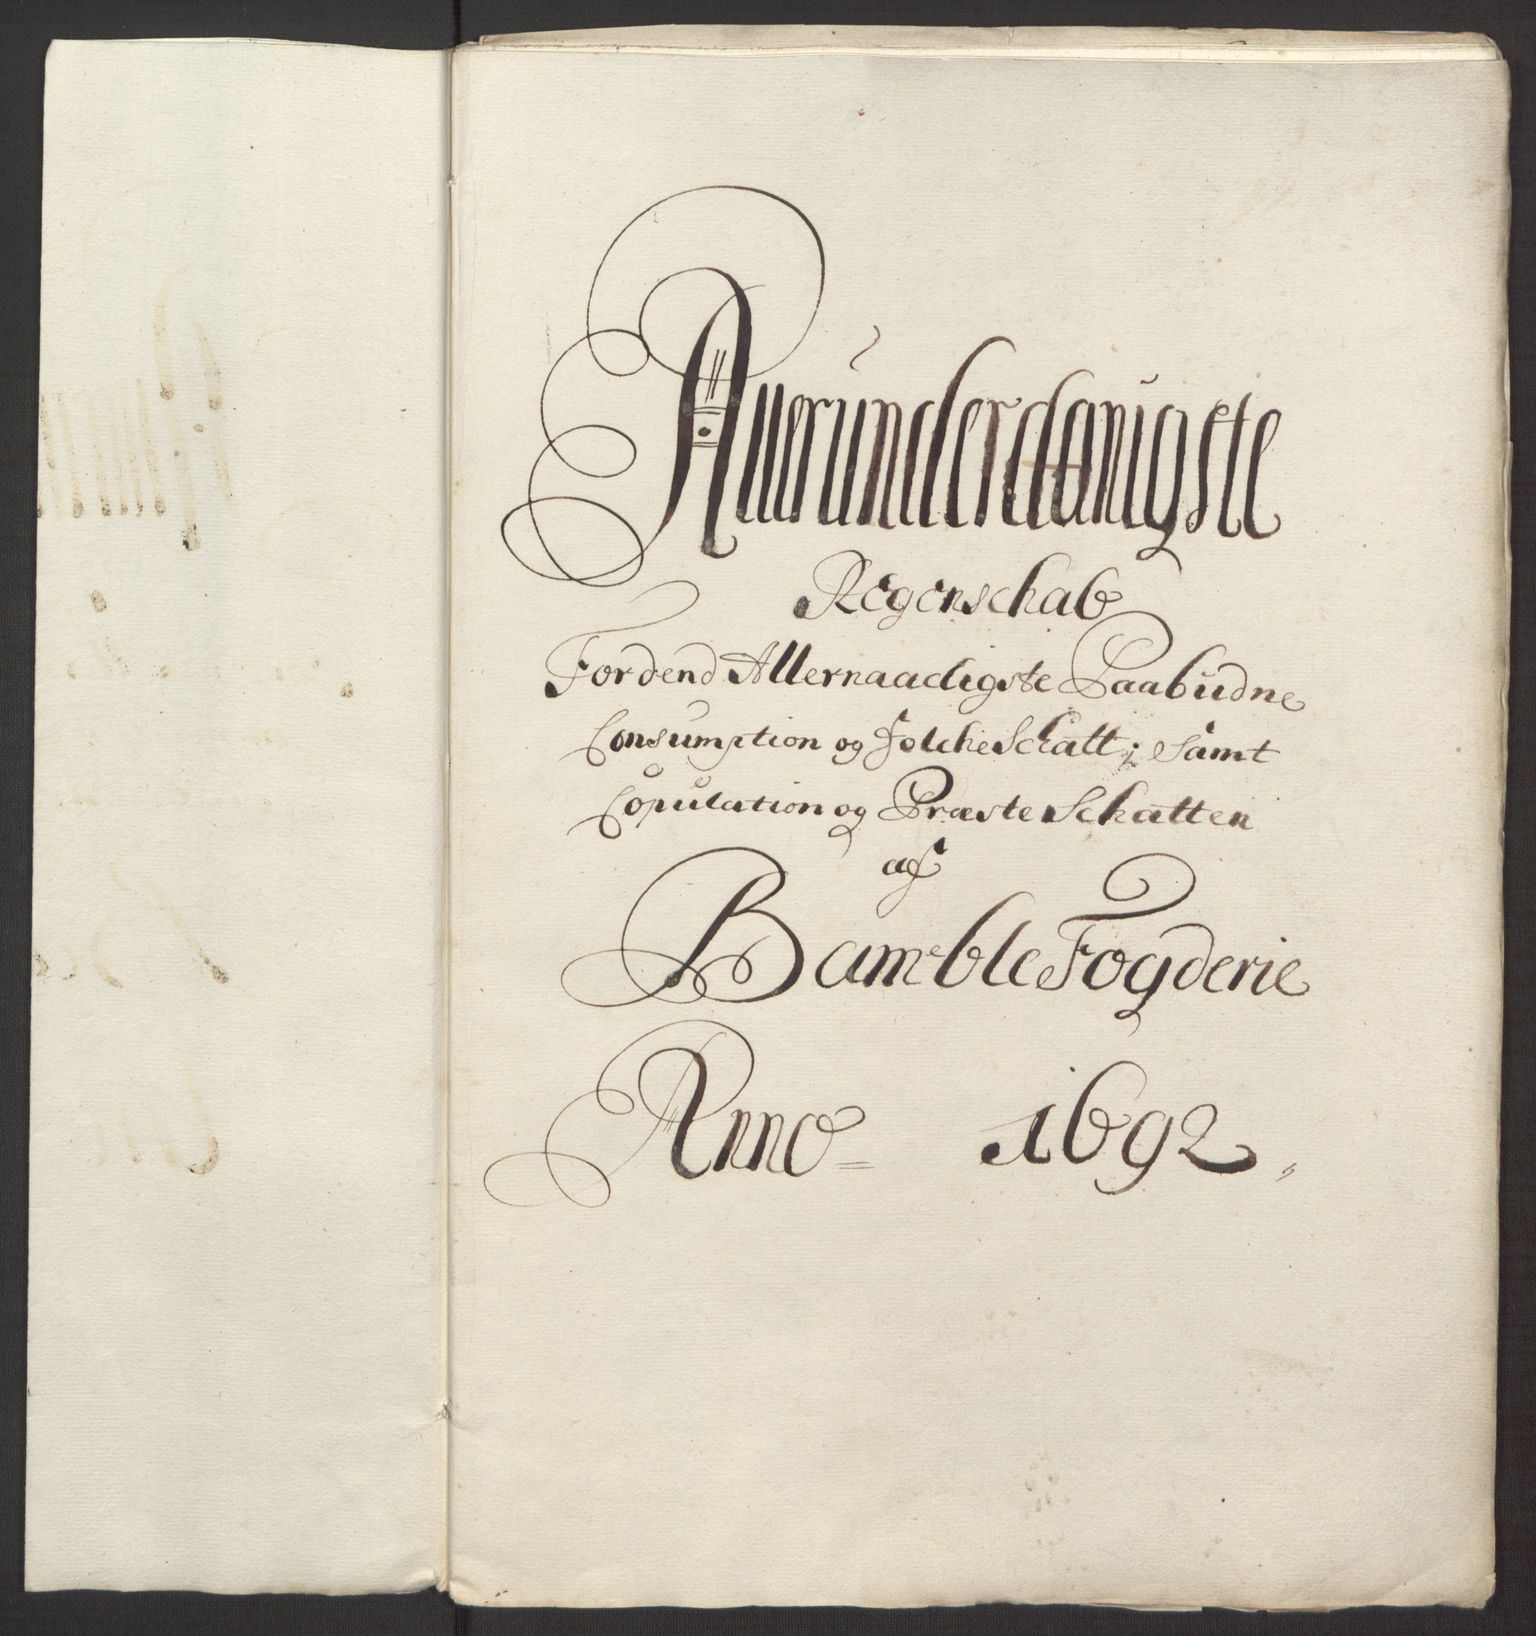 Allerunderdanigste
Regenschab
For dend Allernaadigste Paabudne
Consumption og FolcheSchatt; Samt
Copulation og PræsteSchatten
af
Bamble Fogderie
Anno 1692,